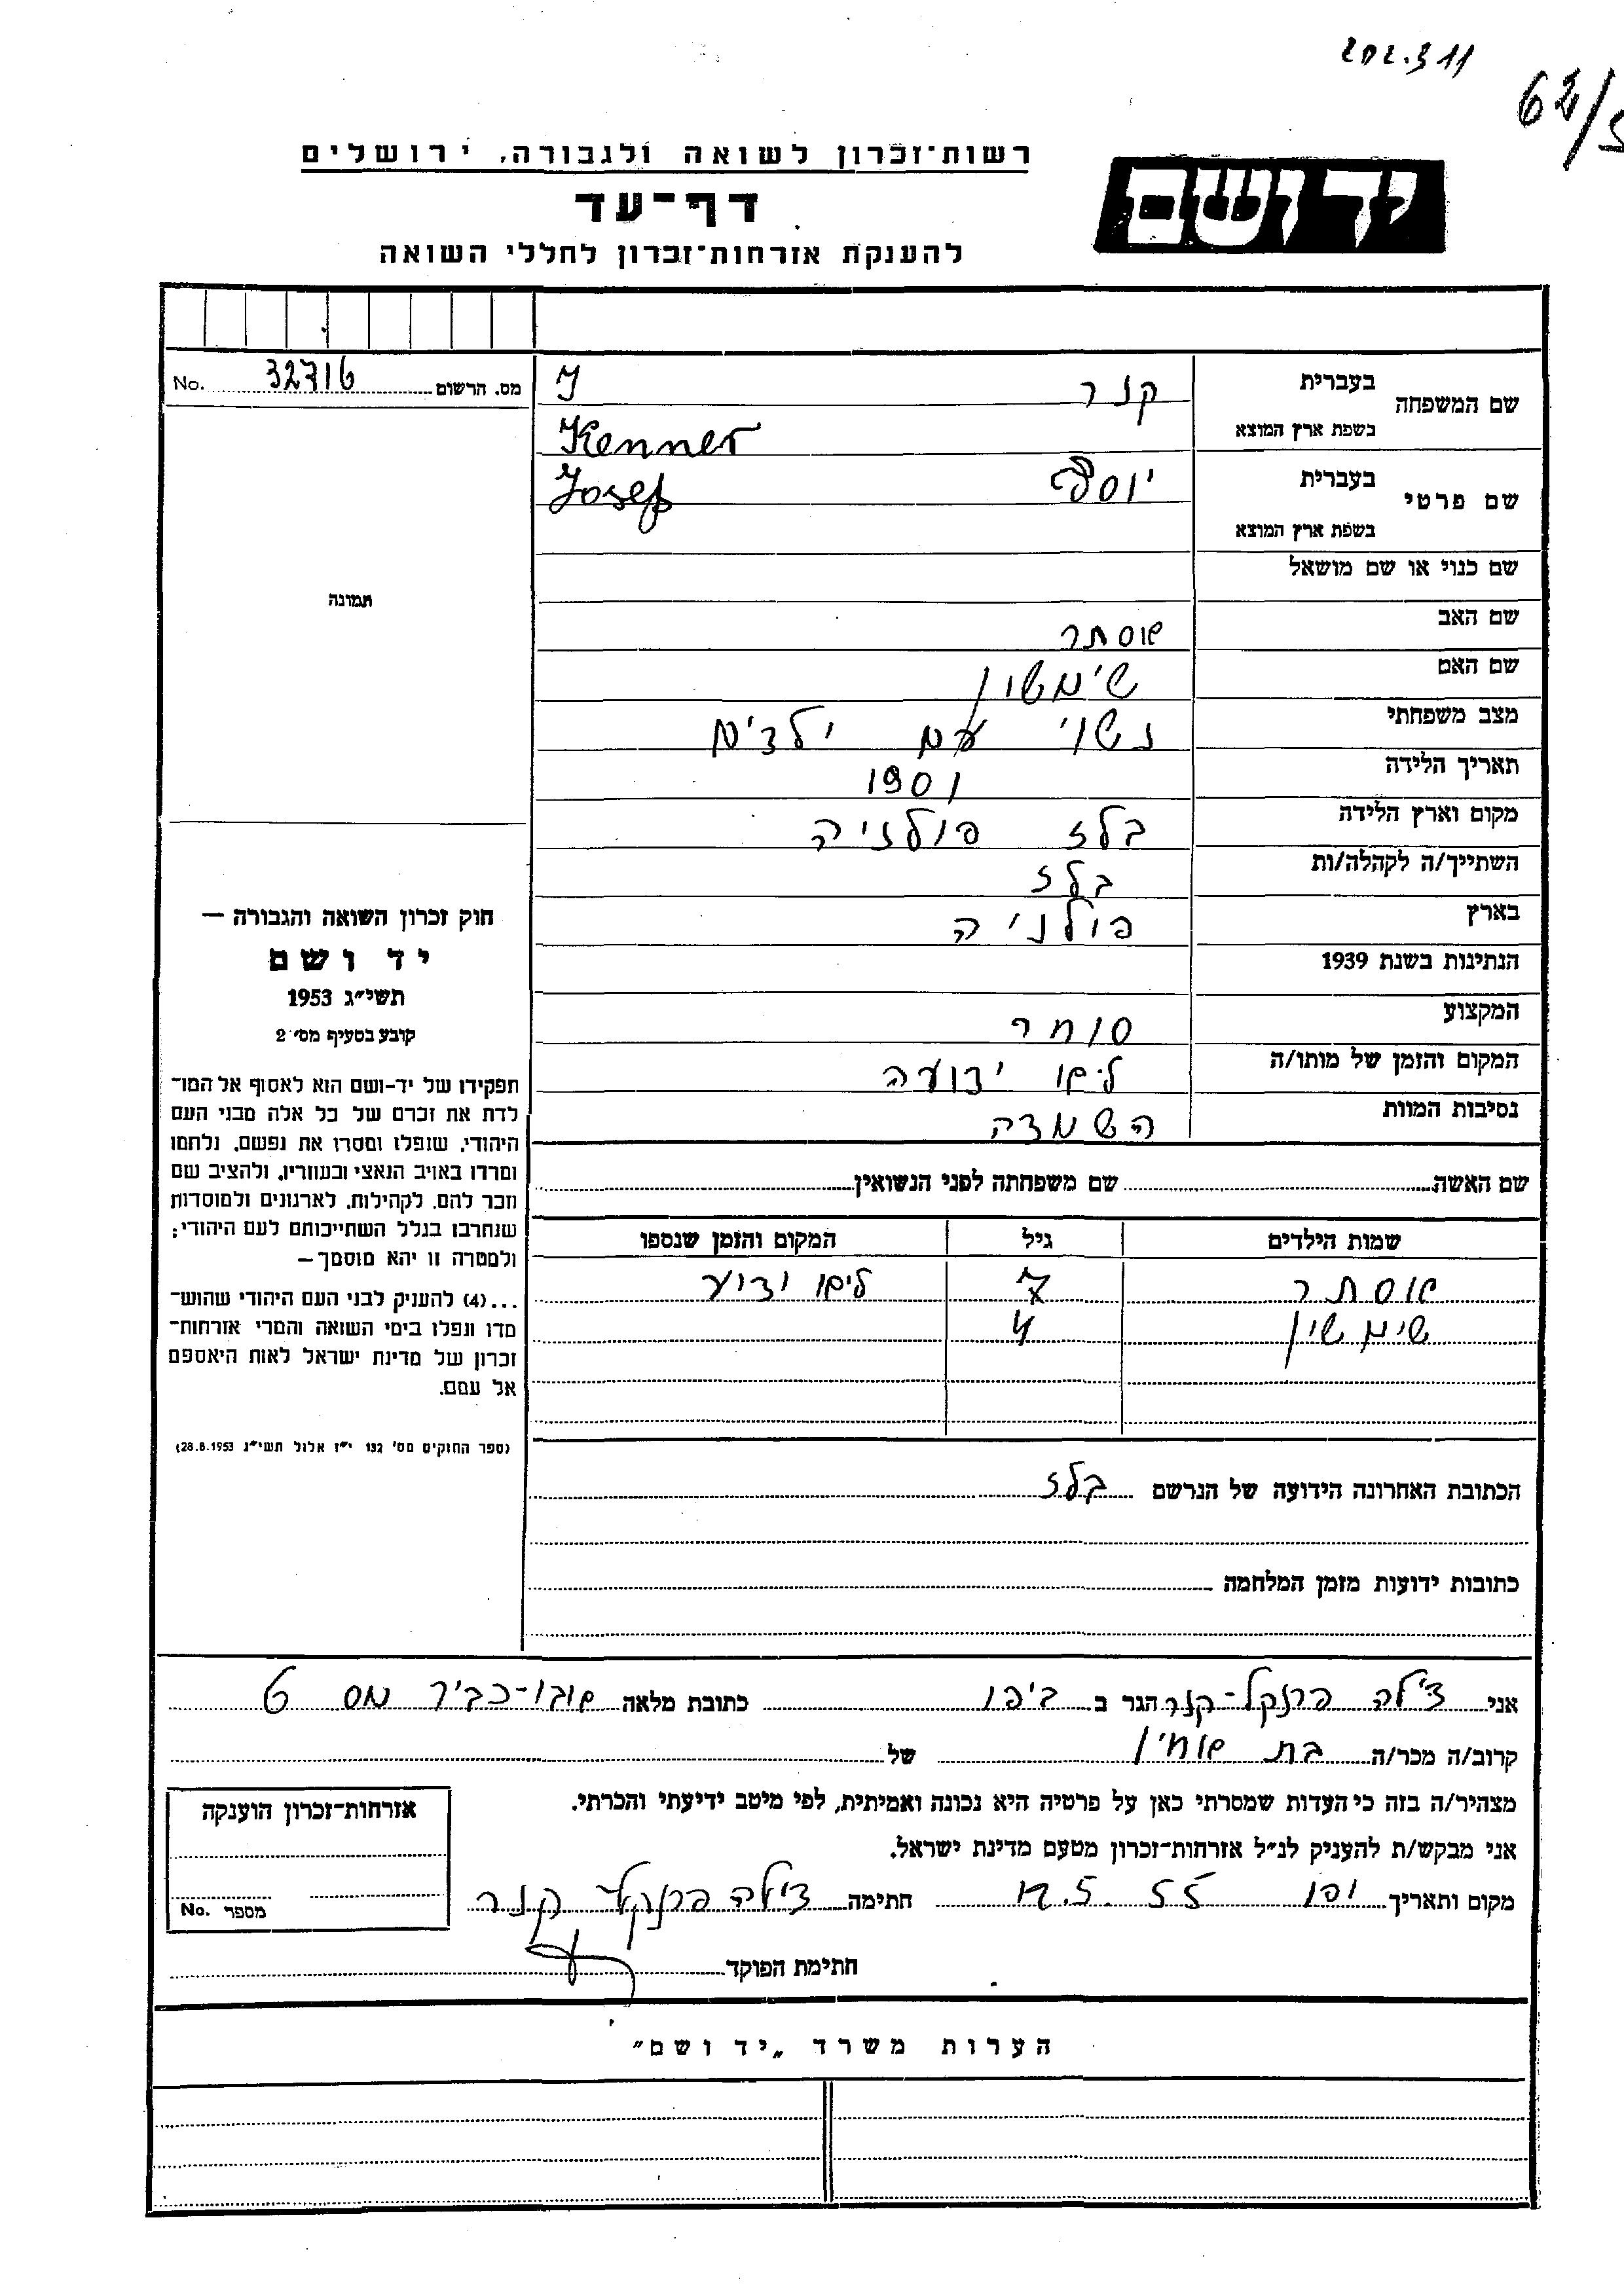 202.311
64/5
רשות־זכרון לשואה ולגבורה, ירושלים
יד ושם
דף־עד
להענקת אזרחות־זכרון לחללי השואה
מס. הרשום 32716 No.
שם המשפחה בעברית קנר
בשפת ארץ המוצא Kenner
שם פרטי בעברית יוסף Josef
בשפת ארץ המוצא
שם כנוי או שם מושאל
שם האב
שם האם
מצב משפחתי נשוי עם ילדים
תאריך הלידה 1901
מקום וארץ הלידה בלז פולניה
השתייך/ה לקהלה/ות בלז
בארץ פולניה
הנתינות בשנת 1939
המקצוע סוחר
המקום והזמן של מותו/ה ידועה
נסיבות המוות השמדה
שם האשה שם משפחתה לפני הנשואין
שמות הילדים גיל המקום והזמן שנספו
7
4
הכתובת האחרונה הידועה של הנרשם בלז
כתובות ידועות מזמן המלחמה
תמונה
חוק זכרון השואה והגבורה —
יד ושם
תשי״ג 1953
קובע בסעיף מס׳ 2
תפקידו של יד-ושם הוא לאסוף אל המו־
לדת את זכרם של כל אלה מבני העם
היהודי, שנפלו ומסרו את נפשם, נלחמו
ומרדו באויב הנאצי ובעוזריו, ולהציב שם
וזכר להם, לקהילות, לארגונים ולמוסדות
שנחרבו בגלל השתייכותם לעם היהודי;
ולמטרה זו יהא מוסמך —
...(4) להעניק לבני העם היהודי שהוש־
מדו ונפלו בימי השואה והמרי אזרחות־
זכרון של מדינת ישראל לאות היאספם
אל עמם.
(ספר החוקים מס׳ 132 י״ז אלול תשי״ג 28.8.1953)
אני צילה פרנקל-קנר הגר ב ביפו כתובת מלאה מס 6
קרוב/ה מכר/ה בת של
מצהיר/ה בזה כי העדות שמסרתי כאן על פרטיה היא נכונה ואמיתית, לפי מיטב ידיעתי והכרתי.
אני מבקש/ת להעניק לנ״ל אזרחות־זכרון מטעם מדינת ישראל.
מקום ותאריך יפו 12.5.55 חתימה צילה פרנקל קנר
חתימת הפוקד
אזרחות־זכרון הוענקה
מספר No.
הערות משרד „יד ושם״